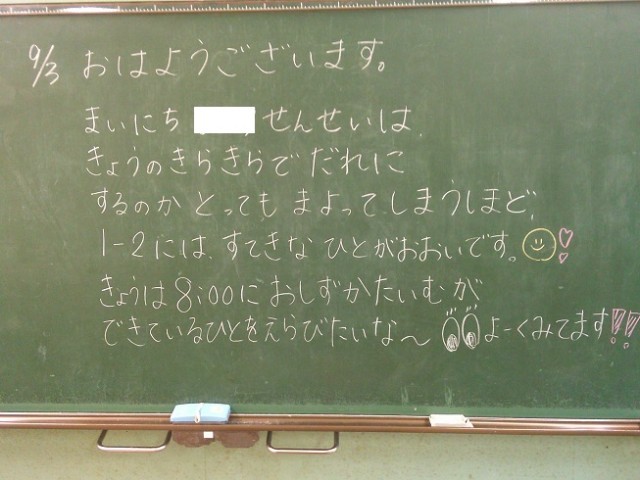 9/3 おはようございます。
まいにち せんせいは、
きょうのきらきらで だれに
するのか とっても まよってしまうほど、
1-2には、すてきな ひとがおおいです。
きょうは 8:00に おしずかたいむが
できているひとをえらびたいな～ よーくみてます!!